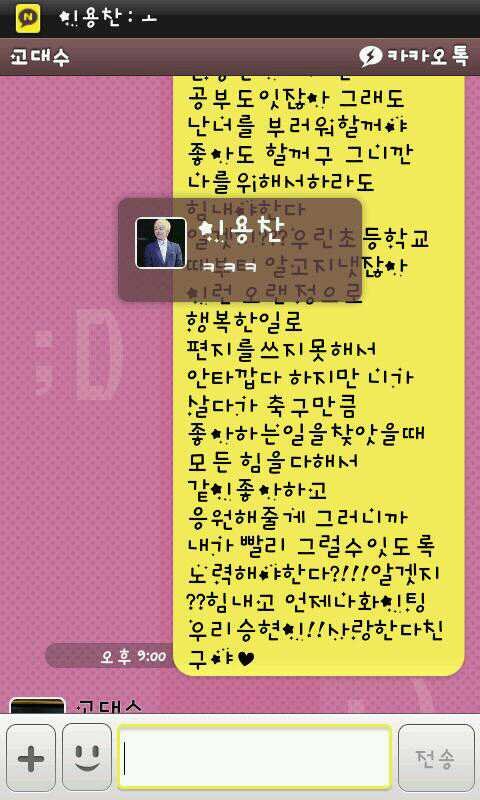 이용찬 : ㅗ
고대수
카카오톡
공부도잇잖아 그래도
난너를 부러워할꺼야
좋아도 할꺼구 그니깐
나를위해서하라도
힘내야한다
이용찬
ㅋㅋㅋ
알겟지??우린초등학교
때부터 알고지냇잖아
이런 오랜정으로
행복한일로
편지를쓰지못해서
안타깝다 하지만 니가
살다가 축구만큼
좋아하는일을찾앗을때
모든 힘을다해서
같이좋아하고
응원해줄게 그러니까
내가 빨리 그럴수잇도록
노력해야한다?!!!알겟지
??힘내고 언제나화이팅
우리승현이!!사랑한다친
구야♥
오후 9:00
고대수
전송